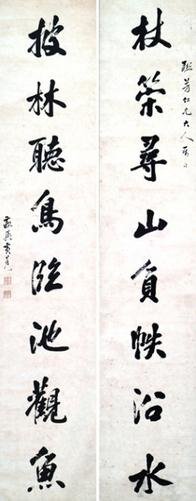 杖策尋山負帙沿水
披林聽鳥臨池觀魚